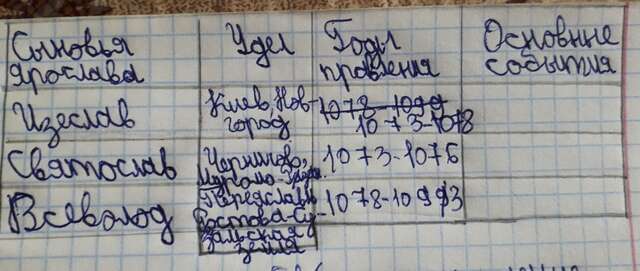 Сыновья Ярослава
Удел
Годы правления
Основные события
Изеслав
Киев, Нов-
город
1078-1099
1073-1078
Святослав
Чернигов,
1073-1076
Всеволод
Переяславль
Ростова-Су-
зальская
земля
1078-10993